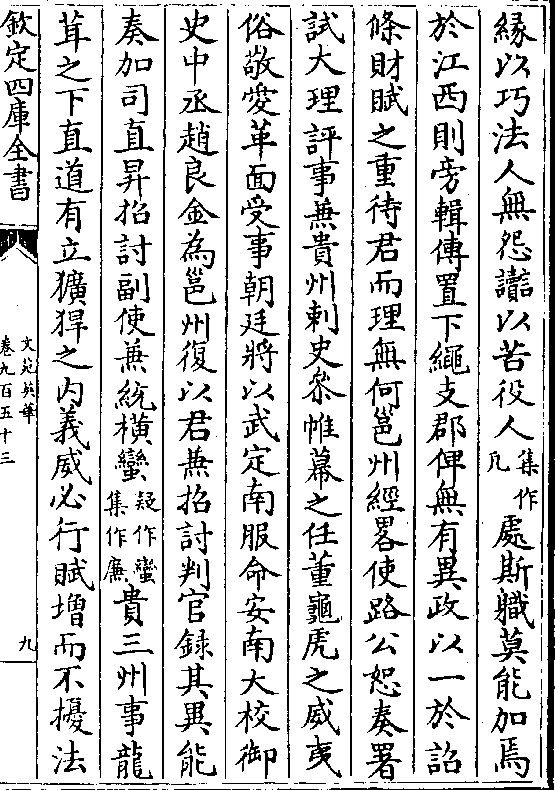 緣以巧法人無怨讟以苦役人集作凡處斯職莫能加焉
於江西則旁輯傳置下繩支郡俾無有異政以一於詔
條財賦之重待君而理無何邕州經畧使路公恕奏署
試大理評事兼貴州刺史叅帷幕之任董龜虎之威夷
俗敬愛革面受事朝廷將以武定南服命安南大校御
史中丞趙良金為邕州復以君兼招討判官録其異能
奏加司直昇招討副使兼統橫蠻疑作蠻集作廉貴三州事龍
茸之下直道有立獷猂之内義威必行賦増而不擾法
欽定四庫全書
文苑英華
卷九百五十三
九